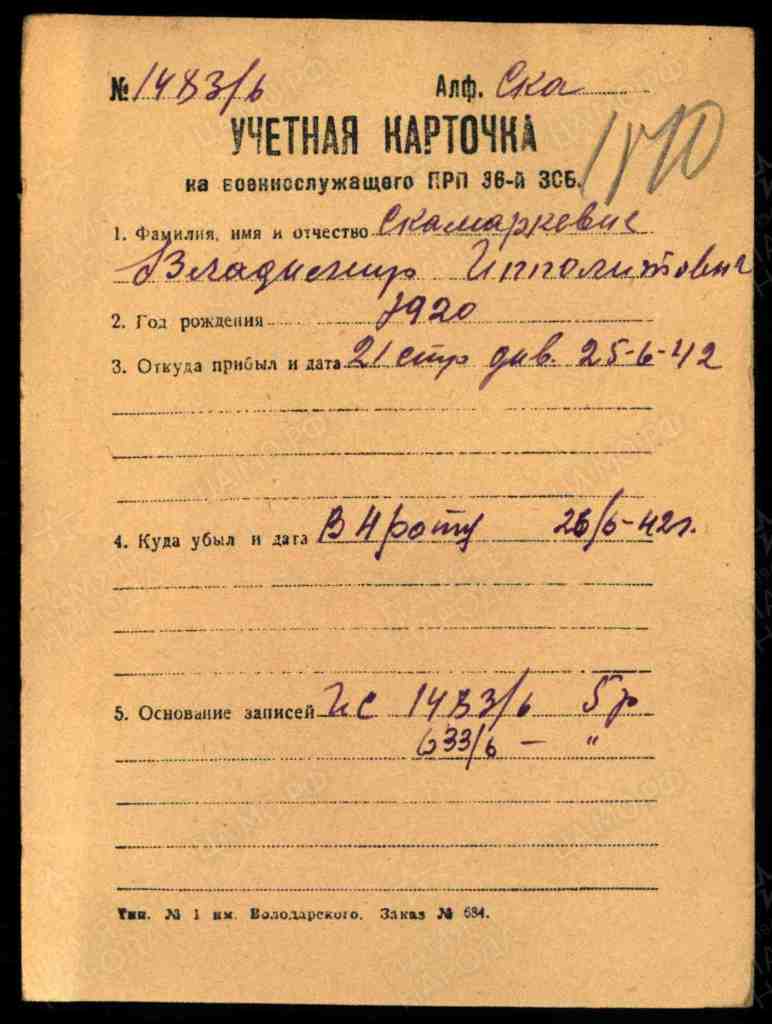 № 1483/6 Алф. Ска
УЧЕТНАЯ КАРТОЧКА
на военнослужащего ПРП 36-й ЗСБ.
1. Фамилия, имя и отчество Скамаркевич
Владимир Ипполитович
2. Год рождения 1920
3. Откуда прибыл и дата 21 стр див. 25-6-42
4. Куда убыл и дата В Н/роту 26/6-42г.
5. Основание записей ИС 1483/6 5р
633/6 — "
Тип. № 1 им. Володарского. Заказ № 684.